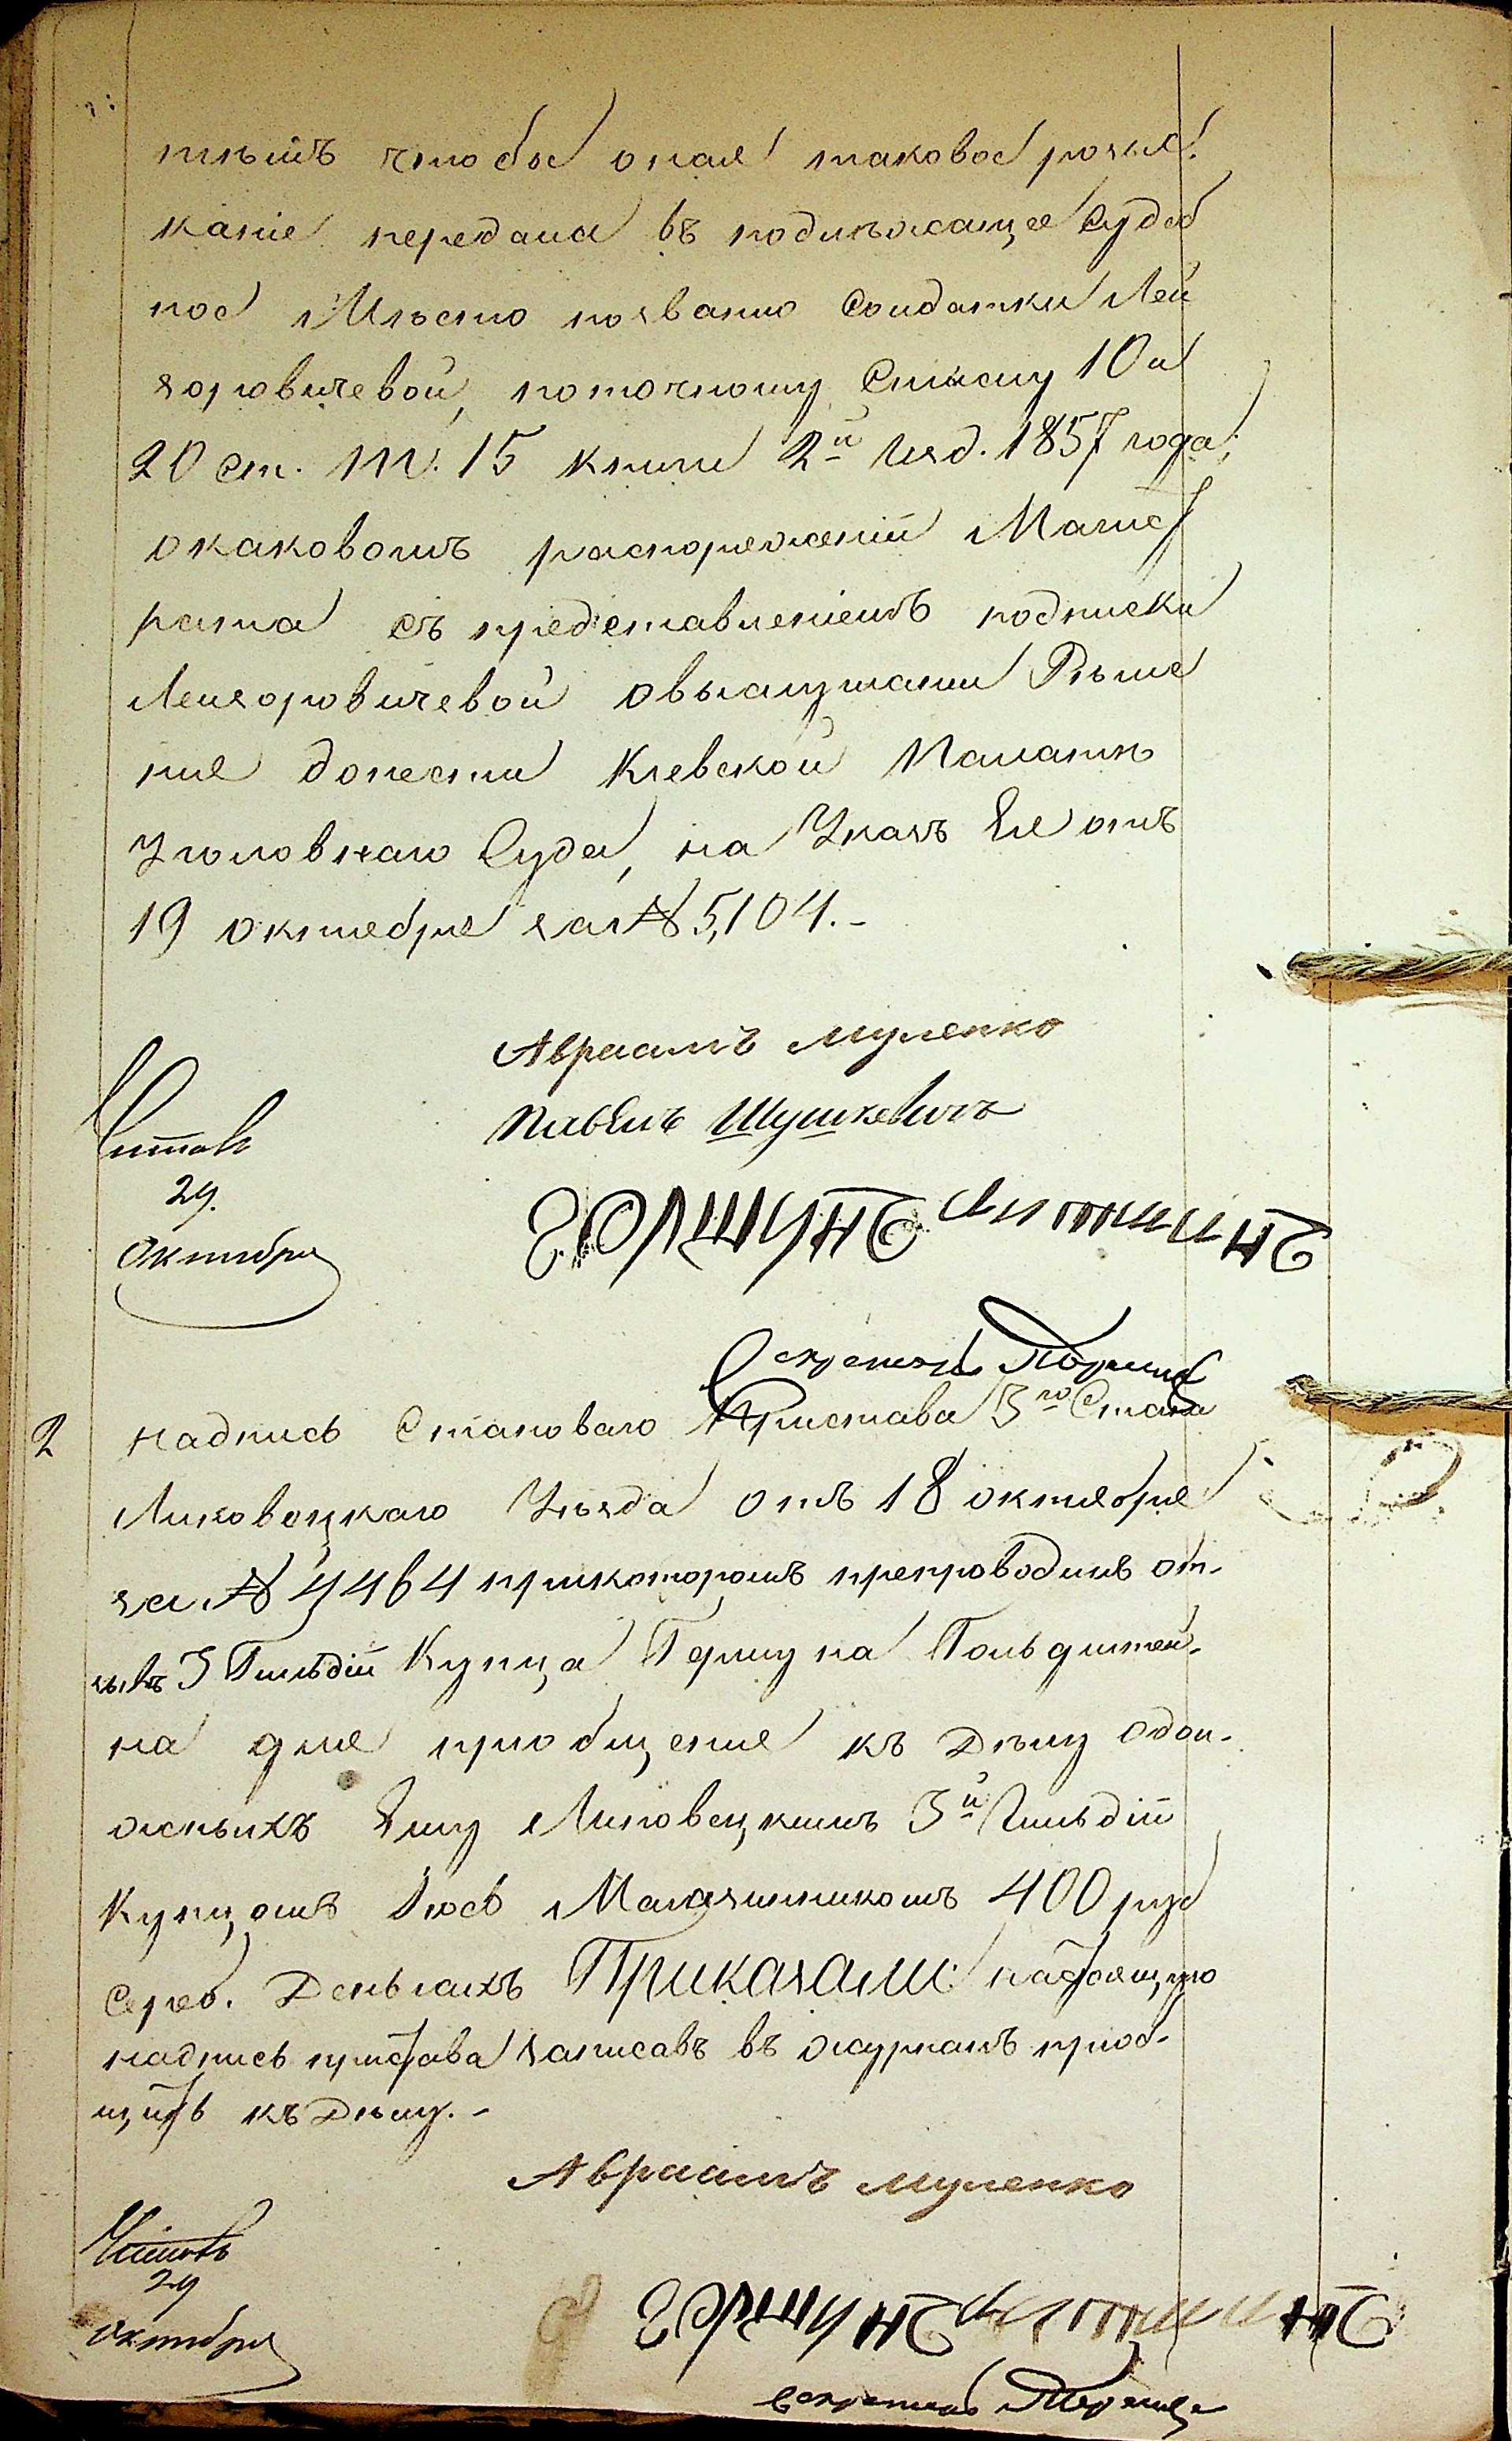 тѣмъ чтобы оная таковое розыс.
каніе передала въ подлѣжащее Судеб
ное Мѣсто позванію Солдатки Лей
зоровичевой, поточному Смыслу 10 и
20 ст. Т. 15 книги 2й Изд. 1857 года;
окаковомъ распоряженіи Магист
рата съ представленіемъ подписки
Лейзоровичевой овыслушаніи Рѣше
нія донести Кіевской Палатѣ
Уголовнаго Суда, на Указъ Ея отъ
19 октября за № 5,104.-
Авраамъ Муленко
Павелъ Шушкевичъ
Читалъ
29.
Октября
Секретарь
2 Надпись Становаго Пристава 3го Стана
Липовецкаго Уѣзда отъ 18 октября
за № 4464 прикоторомъ препроводилъ от-
зывъ 3 Гильдіи Купца Гершуна Гольдштей-
на для пріобщенія къ Дѣлу одол-
жныхъ Ему Липовецкимъ 3й Гильдіи
Купцомъ Іось Магазинникомъ 400 руб
Сереб. Деньгахъ Приказали: настоящую
надпись пристава записавъ въ журналъ пріоб-
щить къ Дѣлу.-
Авраамъ Муленко
Читалъ
29
октября
Секретарь